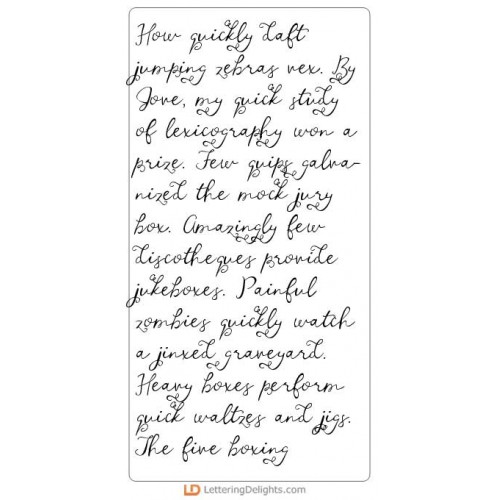 How quickly daft
jumping zebras vex. By
Jove, my quick study
of lexicography won a
prize. Few quips galva-
nized the mock jury
box. Amazingly few
discotheques provide
jukeboxes. Painful
zombies quickly watch
a jinxed graveyard.
Heavy boxes perform
quick waltzes and jigs.
The five boxing
LD LetteringDelights.com